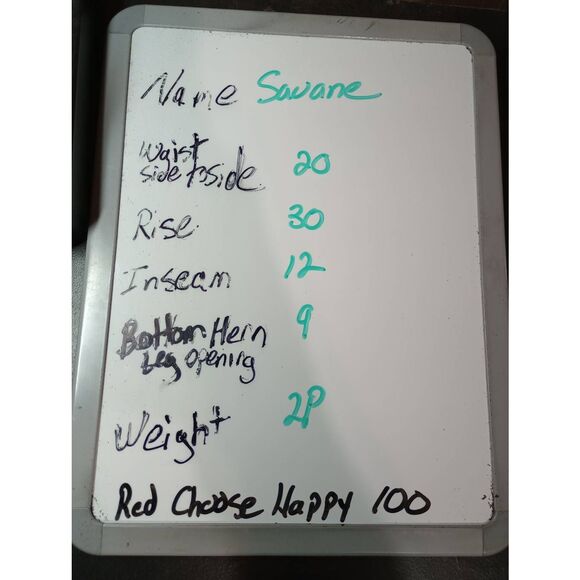 Name Savane
Waist
side to side 20
Rise 30
Inseam 12
Bottom Hem 9
Leg opening
Weight 2P
Red Choose Happy 100